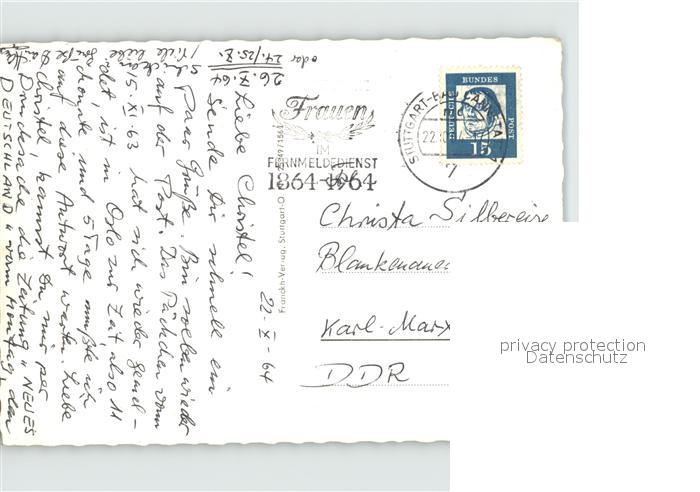 oder 24./25. X.
26. X. 64
22-X-64
Liebe Christel!
Sende Dir schnell ein
Paar Grüße. Bin soeben wieder
auf der Post. Das Päckchen vom
15. XI. 63 hat sich wieder gemel-
det, ist in Oslo zur Zeit also 11
Monate und 5 Tage mußte ich
auf diese Antwort warten. Liebe
Christel, kannst Du mir per
Drucksache die Zeitung "NEUES
DEUTSCHLAND" vom Montag, den
Viele liebe
Grüße
Franckh-Verlag, Stuttgart-O.
Frauen
IM
FERNMELDEDIENST
1864-1964
STUTTGART-BAD CANNSTATT
22.10
7
DEUTSCHE
BUNDES
POST
15
Christa Silbereise
Blankenauer
Karl-Marx
DDR
privacy protection
Datenschutz